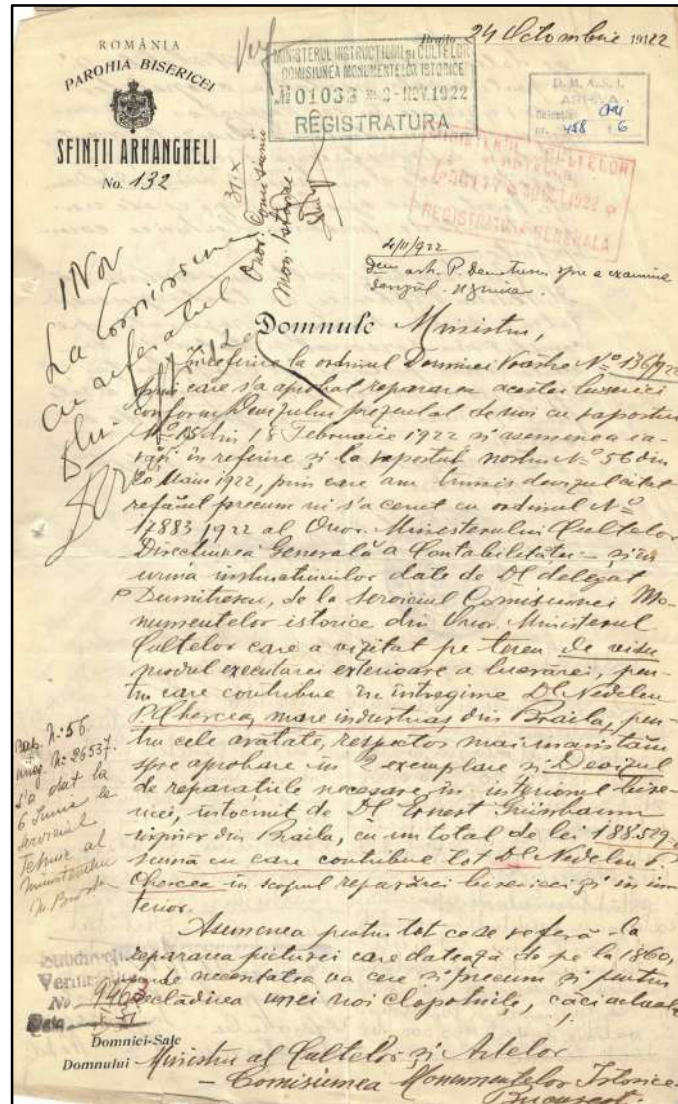 ROMÂNIA
PAROHIA BISERICEI
SFINȚII ARHANGHELI
No. 132
24 Octombrie 1922
MINISTERUL INSTRUCȚIUNII ȘI CULTELOR
COMISIUNEA MONUMENTELOR ISTORICE
No 01033 * 3-NOV.1922
REGISTRATURA
D. M. A. S. I.
ARHIVA
MINISTERUL CULTELOR
REGISTRATURA GENERALA
31.X
Onor. Comisiunii
Mon. Istorice
1 Nov
La Comisiune
cu referatul
4/11/922
arh. P. Demetrescu spre a examina
devizul
Domnule Ministru,
La referire la ordinul Domniei Voastre No 136/922
prin care s'a aprobat repararea acestei biserici
conform Devizului prezentat de noi cu raportul
No 15 din 18 Februarie 1922 și asemenea ia-
răși în referire și la raportul nostru No 56 din
1922, prin care am trimis devizul citat
refăcut precum ni s'a cerut cu ordinul No
17883, 1922 al Onor. Ministerului Cultelor
Direcțiunea Generală a Contabilităței - și în
urma instrucțiunilor date de Dl delegat
P Dumitrescu, de la serviciul Comisiunei Mo-
numentelor istorice din Onor. Ministerul
Cultelor care a vizitat pe teren de visu
modul executarei exterioare a lucrărei, pen-
tru care contribue în întregime Dl Nedelcu
P. Chercea, mare industriaș din Braila, pen-
tru cele arătate, respectos mai înaintăm
spre aprobare în 2 exemplare și Devizul
de reparațiile necesare în interiorul bise-
ricei, întocmit de Dl Ernest Grünbaum
inginer din Braila, cu un total de lei 188.529
sumă cu care contribue tot Dl Nedelcu P.
Chercea în scopul reparărei bisericei și în in-
terior.
Asemenea pentru tot ce se referă la
repararea picturei care datează de pe la 1860,
unde necesitatea va cere și precum și pentru
reclădirea unei noi clopotnițe, căci actuala
Rap. No 56
inreg. No 26537.
s'a dat la
6 Iunie la
serviciul
Tehnic al
Ministerului
No. 9463
Domniei-Sale
Domnului Ministru al Cultelor și Artelor
- Comisiunea Monumentelor Istorice -
București.